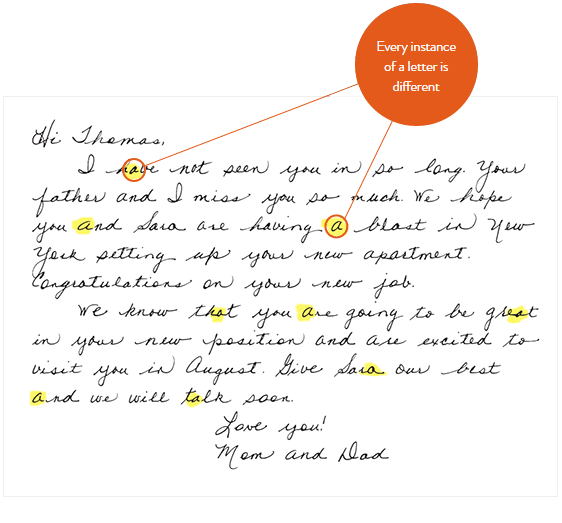 Every instance
of a letter is
different
Hi Thomas,
I have not seen you in so long. Your
father and I miss you so much. We hope
you and Sara are having a blast in New
York setting up your new apartment.
Congratulations on your new job.
We know that you are going to be great
in your new position and are excited to
visit you in August. Give Sara our best
and we will talk soon.
Love you!
Mom and Dad